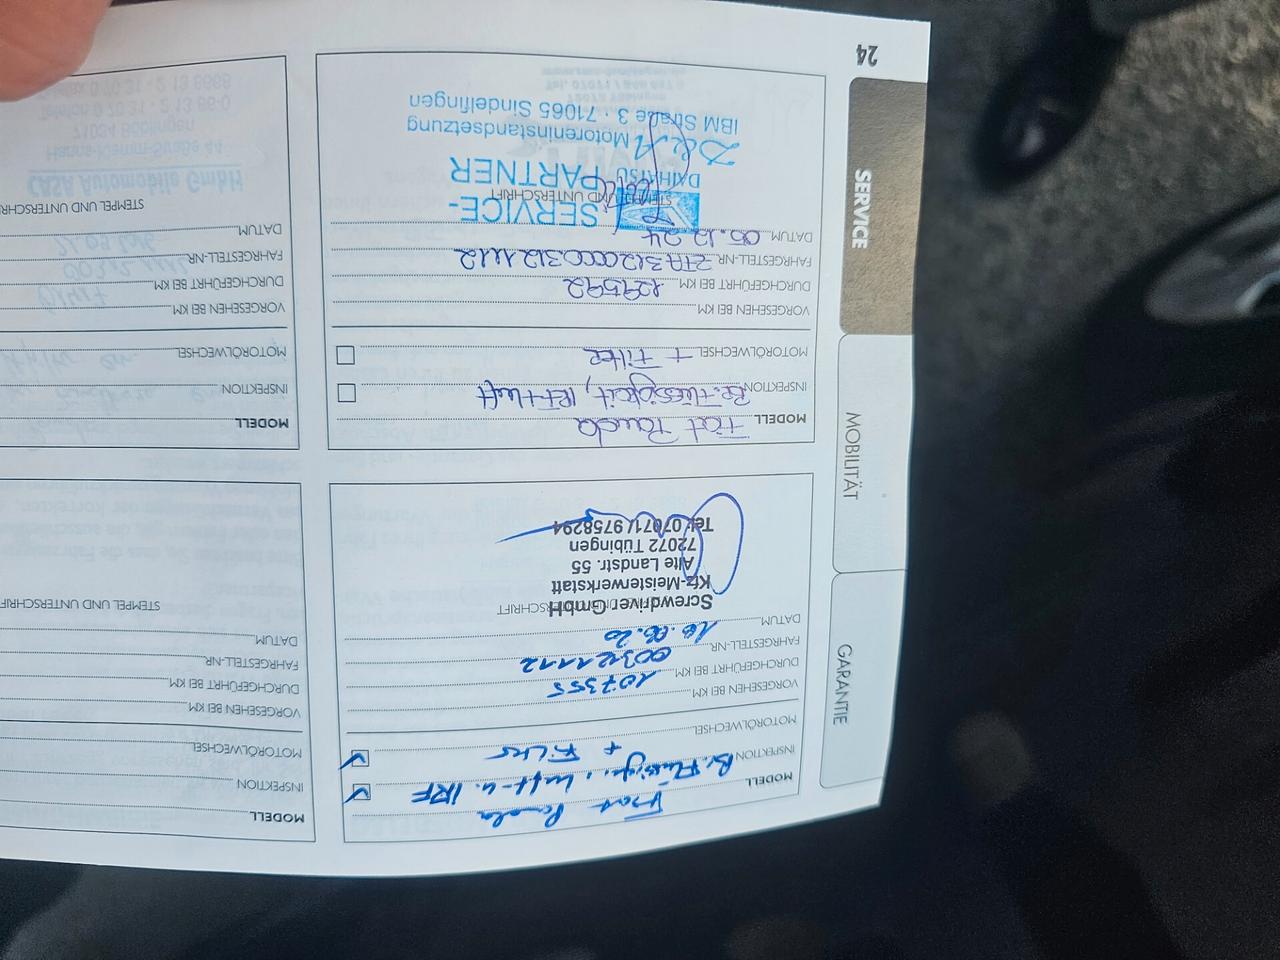 MODELL Fiat Panda
INSPEKTION Br. Flüssigk., Luft- u. IRF
MOTORÖLWECHSEL + Filter
VORGESEHEN BEI KM
DURCHGEFÜHRT BEI KM 107355
FAHRGESTELL-NR. 00321112
DATUM 16.06.20
STEMPEL UND UNTERSCHRIFT
Screwdriver GmbH
Kfz-Meisterwerkstatt
Alte Landstr. 55
72072 Tübingen
Tel. 07071/9758294
MODELL Fiat Panda
INSPEKTION Br.-Flüssigkeit, IRF+Luft
MOTORÖLWECHSEL + Filter
VORGESEHEN BEI KM
DURCHGEFÜHRT BEI KM 129592
FAHRGESTELL-NR. ZFA31200003121112
DATUM 05.12.24
STEMPEL UND UNTERSCHRIFT
SERVICE-
DAIHATSU PARTNER
D&A Motoreninstandsetzung
IBM Straße 3 · 71065 Sindelfingen
MODELL
INSPEKTION
MOTORÖLWECHSEL
VORGESEHEN BEI KM
DURCHGEFÜHRT BEI KM
FAHRGESTELL-NR.
DATUM
STEMPEL UND UNTERSCHRIFT
MODELL
INSPEKTION
MOTORÖLWECHSEL
VORGESEHEN BEI KM
DURCHGEFÜHRT BEI KM
FAHRGESTELL-NR.
DATUM
STEMPEL UND UNTERSCHRIFT
CASA Automobile GmbH
Hanns-Klemm-Straße 44
71034 Böblingen
GARANTIE
MOBILITÄT
SERVICE
24